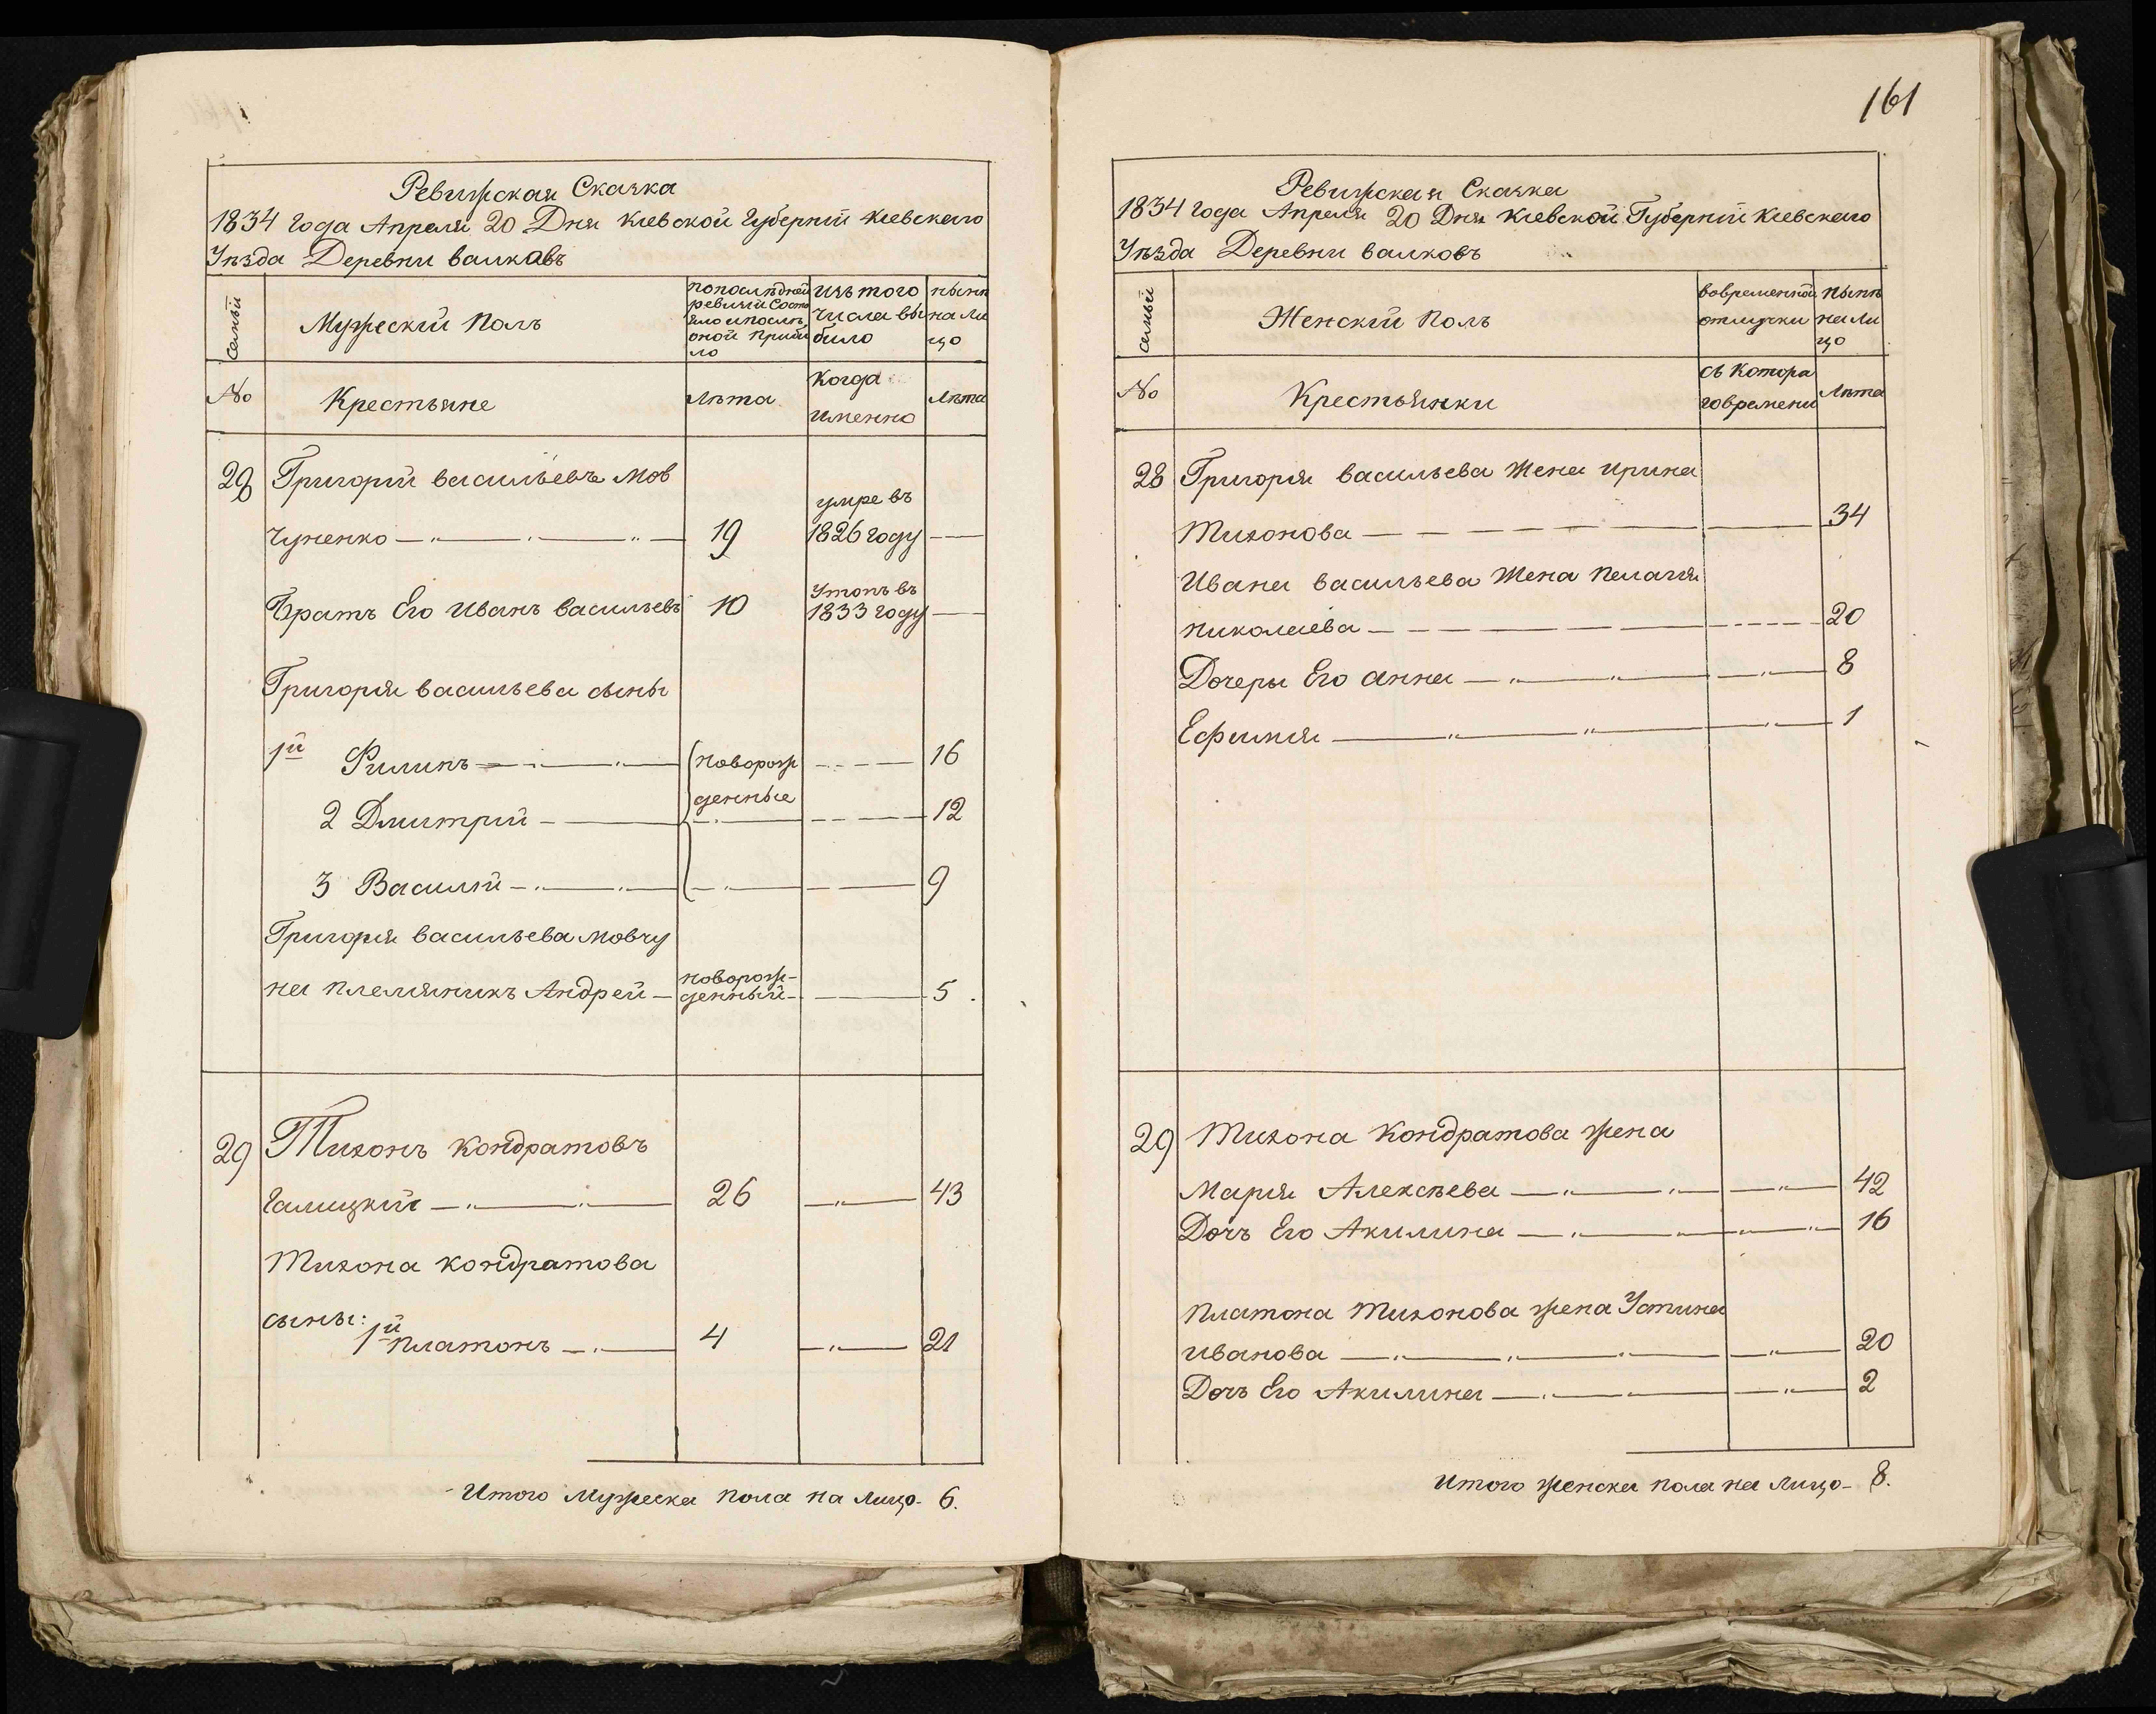 Ревизская Сказка
1834 Года Апреля 20 Дня Кіевской Губерніи Кіевскаго
Уѣзда Деревни валковъ
семьи
Мужескій Полъ
попослѣдней
ревизіи Состо
яло ипослѣ
оной Прибы
ло
изъ того
числа вы
было
нынѣ
на Ли
цо
№
Крестьяне
Лѣта
Когда
именно
Лѣта
28 Григорій васильевъ Мов
чуненко 19 умре въ 1826 году
Братъ Его Иванъ Васильевъ 10 Утопъ въ 1833 году
Григорія васильева сыны
1й Филипъ новорож 16
2 Дмитрій денные 12
3 Василій 9
Григорія васильева мовчу
на племяникъ Андрей новорож-денный 5
29 Тихонъ Кондратовъ
Галицкій 26 43
Тихона Кондратова
сыны:
1й Платонъ 4 21
Итого Мужеска пола на Лицо - 6.
161
Ревизская Сказка
1834 Года Апреля 20 Дня Кіевской Губерніи Кіевскаго
Уѣзда Деревни валковъ
семьи
Женскій Полъ
вовременной
отлучки
нынѣ
на Ли
цо
№
Крестьянки
съ Котора
говремени
Лѣта
28 Григорія васильева Жена ирина
Тихонова 34
Ивана васильева Жена пелагія
николаева 20
Дочеры Его анна 8
Ефимія 1
29 Тихона Кондратова жена
Марія Алексѣева 42
Дочъ Его Акилина 16
Платона Тихонова жена Устина
Иванова 20
Дочъ Его Акилина 2
Итого женска пола на Лицо - 8.